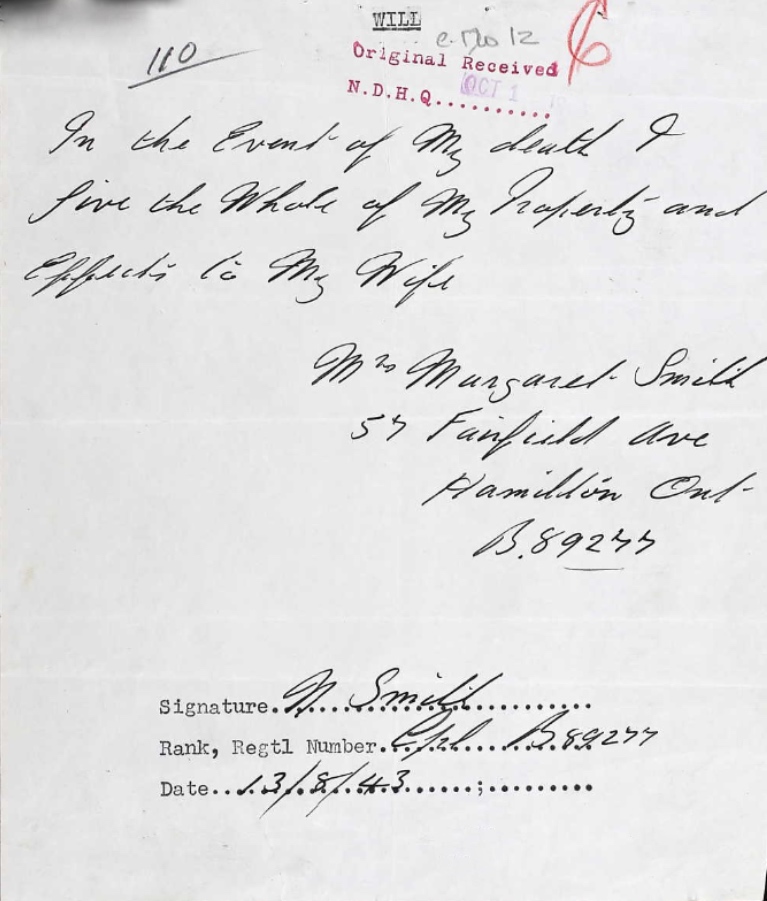 WILL
110
Original Received
N.D.H.Q...........
OCT 1
In the Event of My death I
Give the Whole of My Property and
Effects to My Wife
Mrs Margaret Smith
57 Fairfield Ave
Hamilton Ont-
B.89277
Signature. N Smith
Rank, Regtl Number. Cpl B89277
Date.. 13/8/43